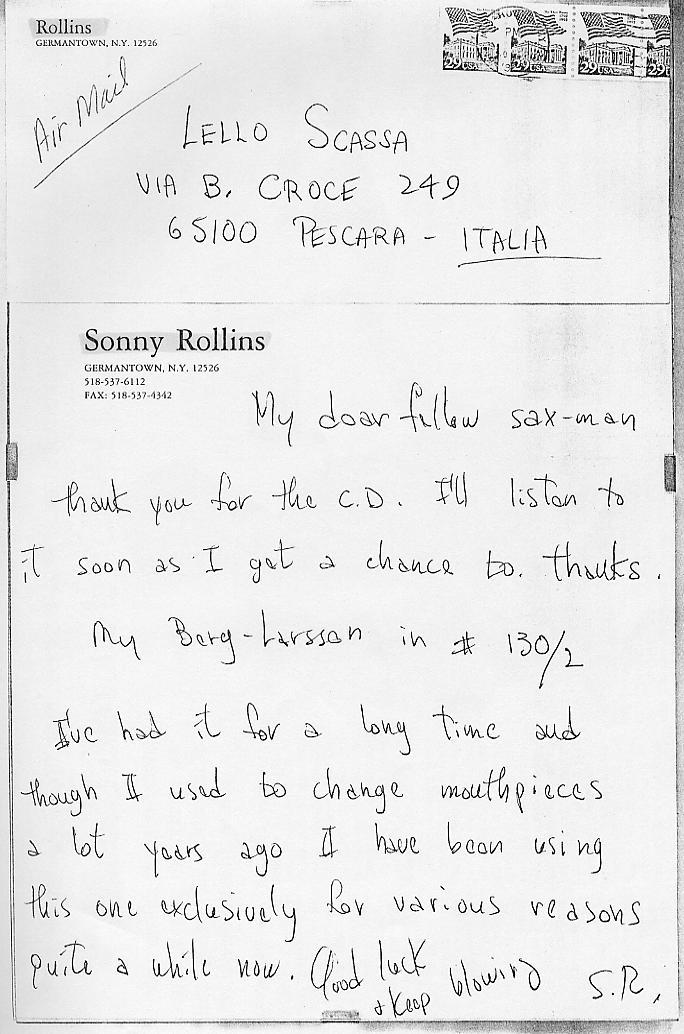 Rollins
GERMANTOWN, N.Y. 12526
29 USA 29 USA 29 USA 29 USA
PM
Air Mail
LELLO SCASSA
VIA B. CROCE 249
65100 PESCARA - ITALIA
Sonny Rollins
GERMANTOWN, N.Y. 12526
518-537-6112
FAX: 518-537-4342
My dear fellow sax-man
thank you for the C.D. I'll listen to
it soon as I get a chance to. thanks.
My Berg-Larssen in # 130/2
I've had it for a long time and
though I used to change mouthpieces
a lot years ago I have been using
this one exclusively for various reasons
quite a while now. Good luck
& Keep blowing S.R.